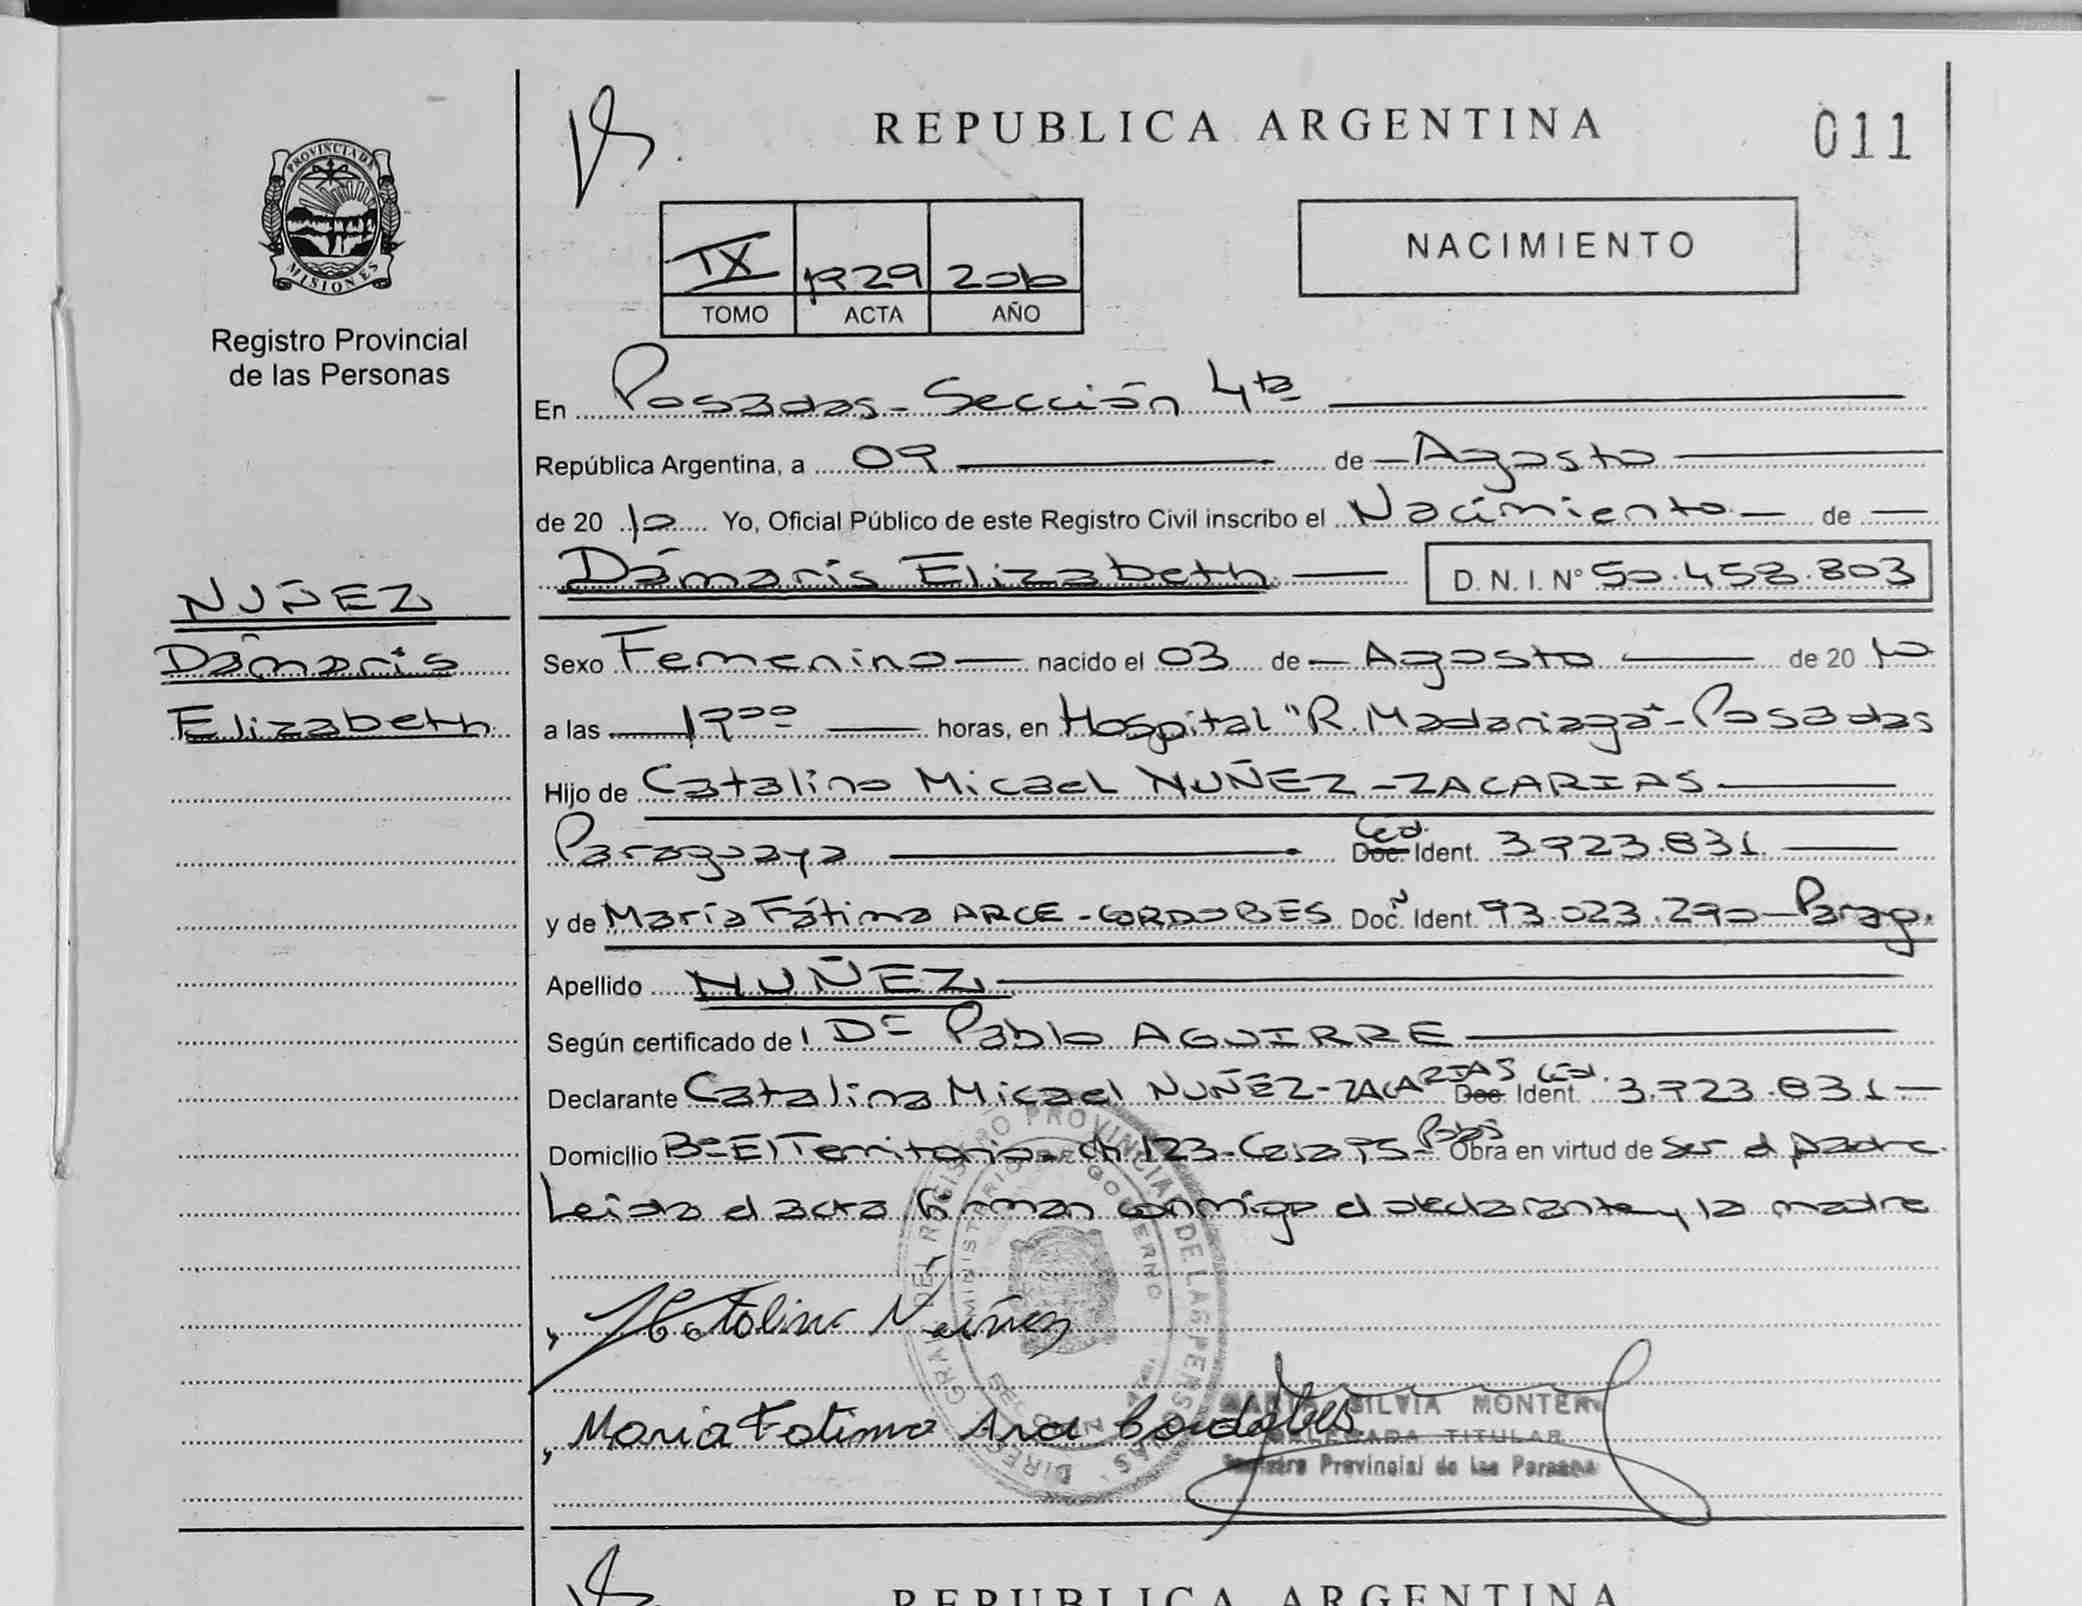 REPUBLICA ARGENTINA
011
PROVINCIA DE
MISIONES
Registro Provincial
de las Personas
IX 1729 2010
TOMO ACTA AÑO
NACIMIENTO
En Posadas - Sección 4ta
República Argentina, a 09 de Agosto
de 2010 Yo, Oficial Público de este Registro Civil inscribo el Nacimiento de
Dámaris Elizabeth D. N. I. N° 50.458.803
NUÑEZ
Dámaris
Elizabeth
Sexo Femenino nacido el 03 de Agosto de 2010
a las 19:00 horas, en Hospital "R. Madariaga" - Posadas
Hijo de Catalino Micael NUÑEZ - ZACARIAS
Paraguaya Ced. Doc. Ident. 3.723.831
y de María Fátima ARCE - CORDOBES Doc. Ident. 93.023.290 - Parag.
Apellido NUÑEZ
Según certificado de Pablo AGUIRRE
Declarante Catalino Micael NUÑEZ - ZACARIAS Ced. Doc Ident. 3.723.831
Domicilio B° El Territorio - Ch. 123 - Casa 75 - Pdas Obra en virtud de ser el padre.
Leida el acta firman conmigo el declarante y la madre
Catalino Nuñez
Maria Fatima Arce Cordobes
SILVIA MONTER
DELEGADA TITULAR
Registro Provincial de las Personas
DIRECCION GRAL DEL REGISTRO PROVINCIAL DE LAS PERSONAS
MINISTERIO DE GOBIERNO
REPUBLICA ARGENTINA